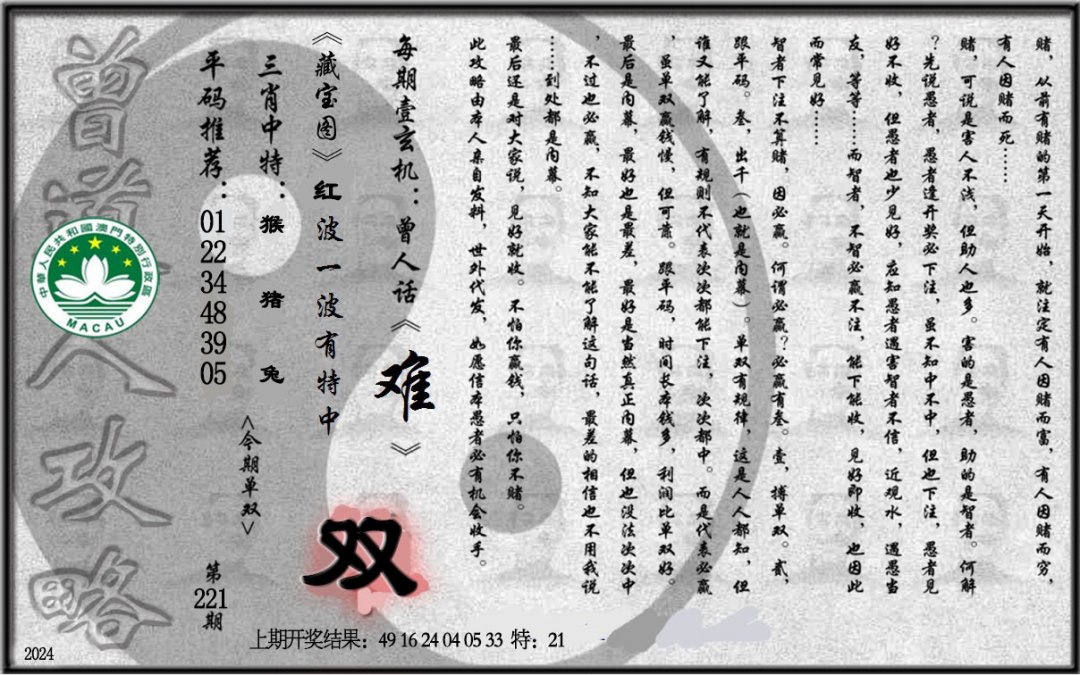 赌，从前有赌的第一天开始，就注定有人因赌而富，有人因赌而穷，
有人因赌而死……
赌，可说是害人不浅，但助人也多。害的是愚者，助的是智者。何解
？先说愚者，愚者逢开奖必下注，虽不知中不中，但也下注，愚者见
好不收，但愚者也少见好，应知愚者遇害智者不信，近观水，遇愚当
友，等等……而智者，不智必赢不注，能下能收，见好即收，也因此
而常见好……
智者下注不算赌，因必赢。何谓必赢？必赢有叁。壹，搏单双。贰，
跟平码。叁，出千（也就是内幕）。单双有规律，这是人人都知，但
谁又能了解，有规则不代表次次都能下注，次次都中。而是代表必赢
，虽单双赢钱慢，但可靠。跟平码，时间长本钱多，利润比单双好。
最后是内幕，最好也是最差，最好是当然真正内幕，但也没法次次中
，不过也必赢，不知大家能不能了解这句话，最差的相信也不用我说
……到处都是内幕。
最后还是对大家说，见好就收。不怕你赢钱，只怕你不赌。
此攻略由本人亲自发料，世外代发，如愿信本愚者必有机会收手。
每期壹玄机：曾人话《难》
《藏宝图》红波一波有特中
双
三肖中特：猴 猪 兔
<今期单双>
平码推荐：01 22 34 48 39 05
第221期
曾道人攻略
中華人民共和國澳門特別行政區
MACAU
上期开奖结果：49 16 24 04 05 33 特：21
2024